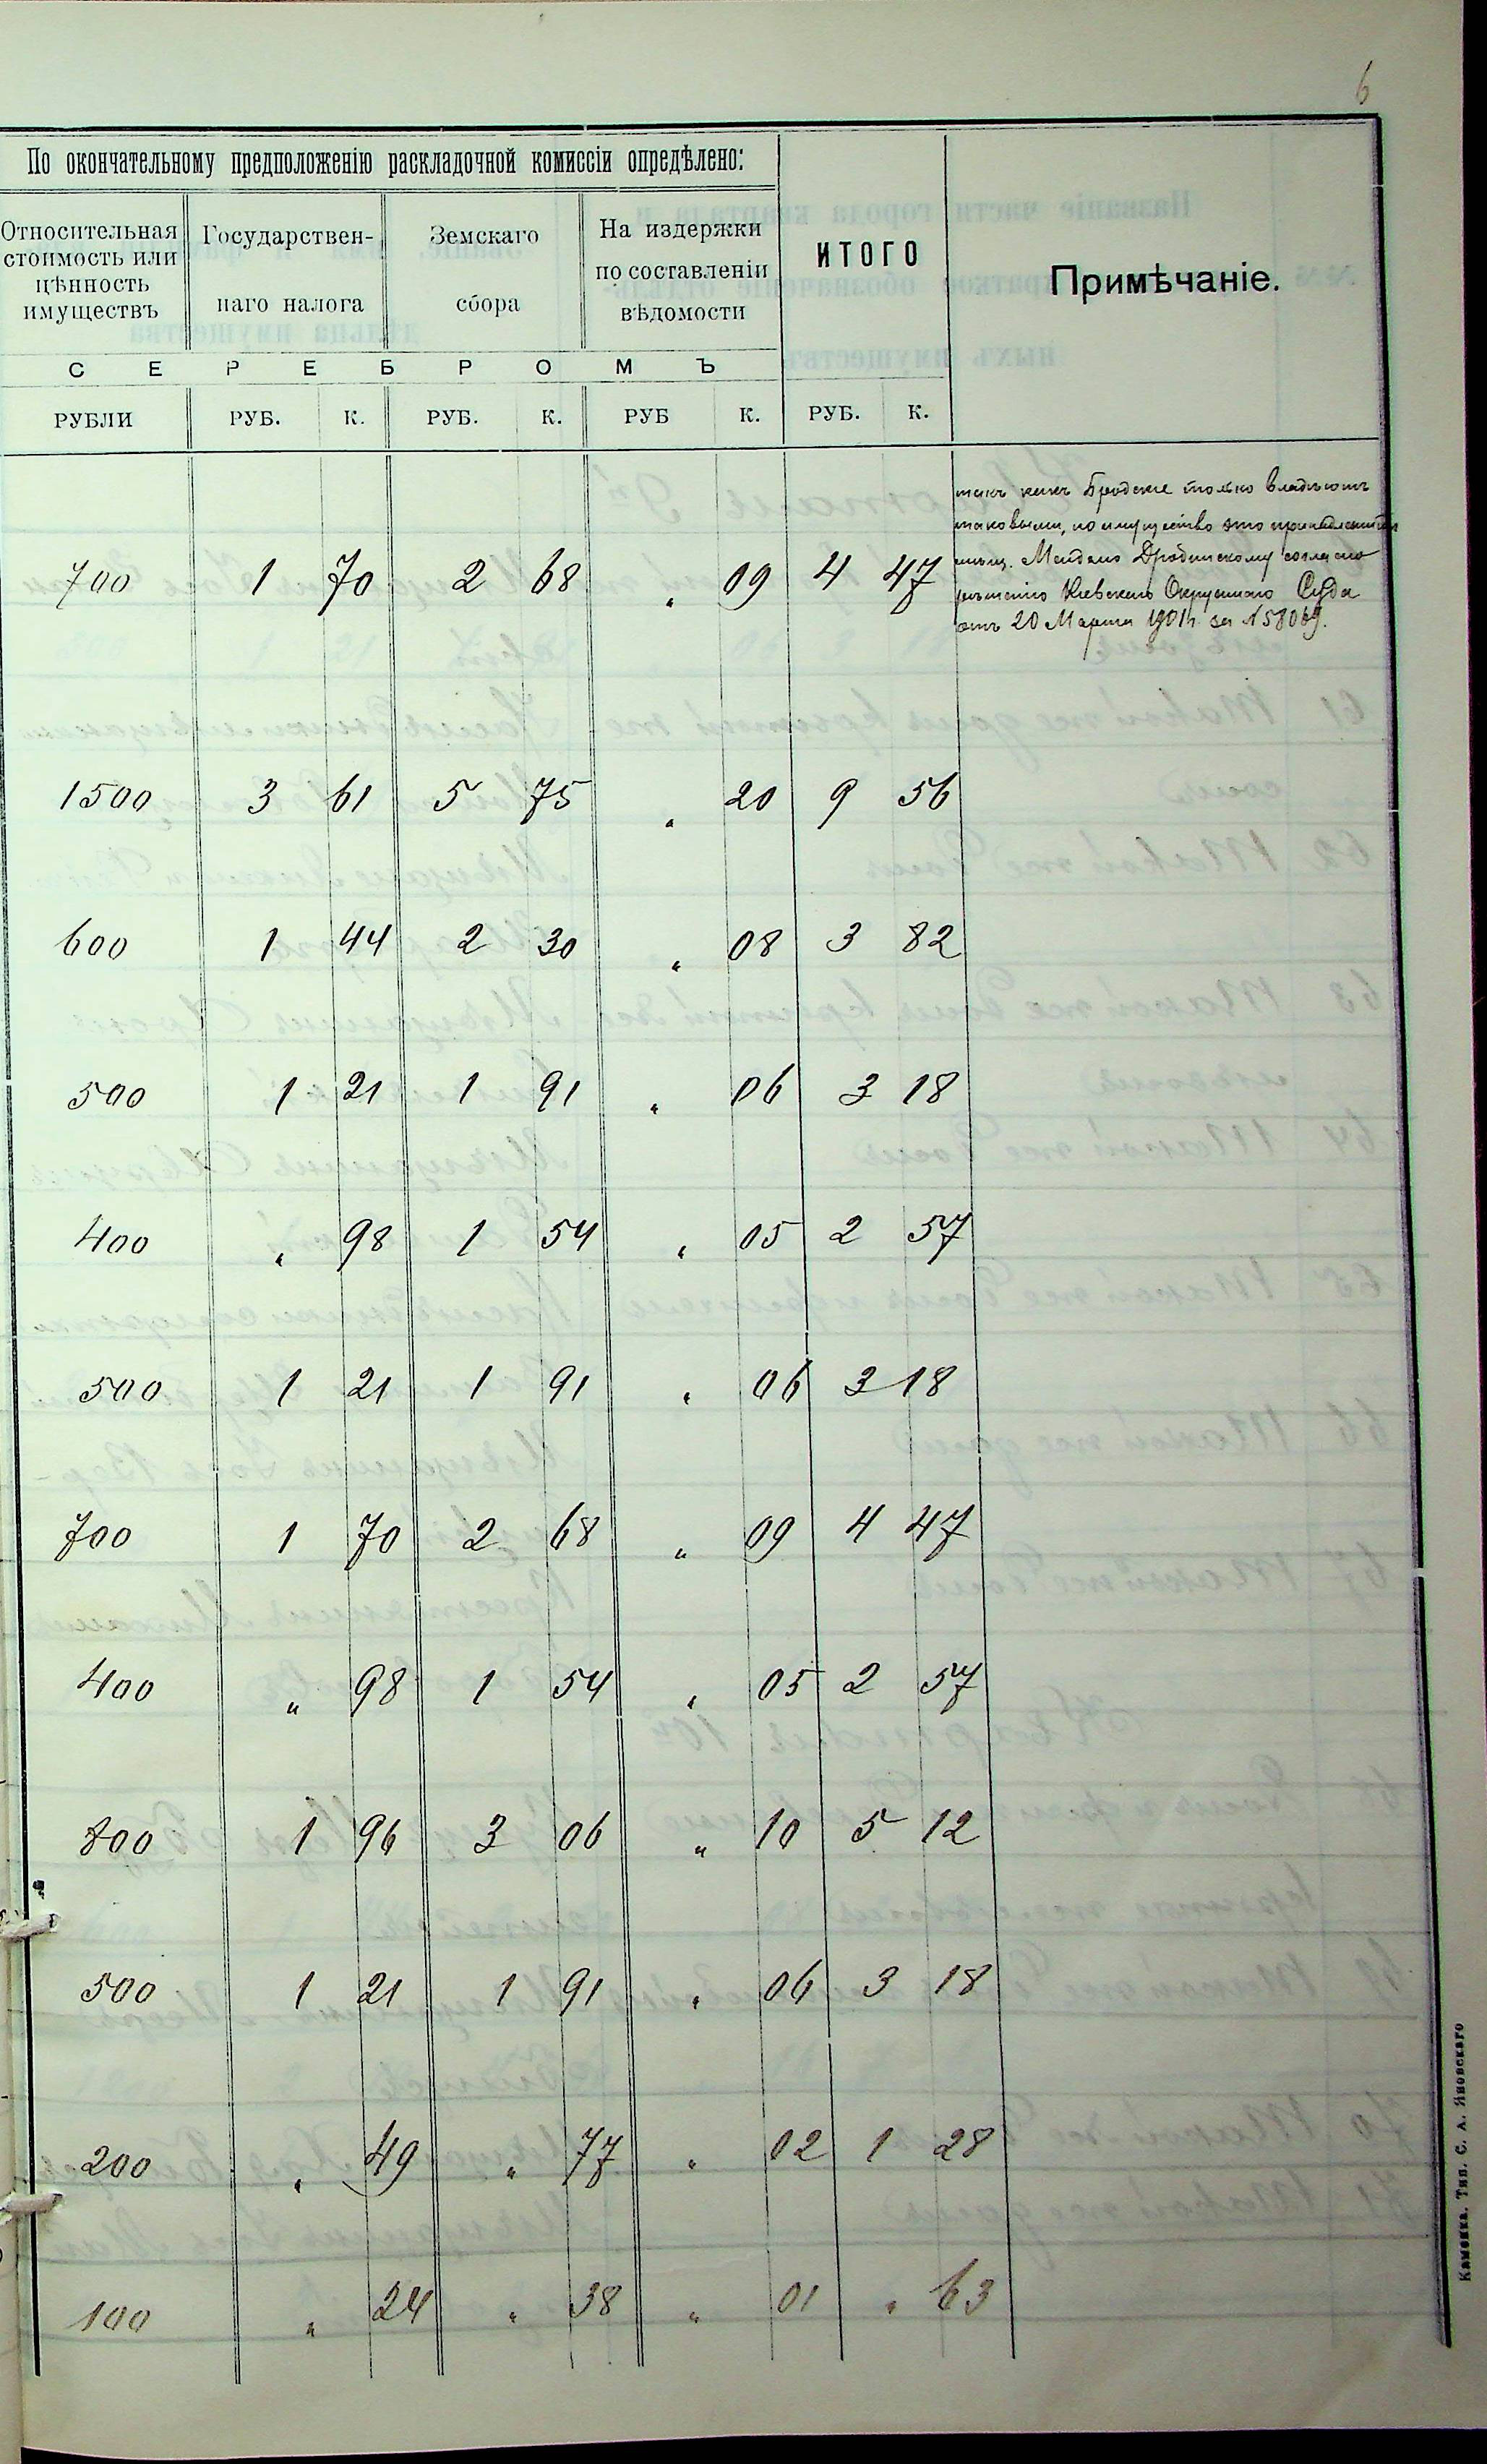 6
По окончательному предположенію раскладочной комиссіи опредѣлено:
Относительная стоимость или цѣнность имуществъ
Государственнаго налога
Земскаго сбора
На издержки по составленіи вѣдомости
ИТОГО
Примѣчаніе.
С Е Р Е Б Р О М Ъ
РУБЛИ РУБ. К. РУБ. К. РУБ К. РУБ. К.
такъ какъ Бродскіе только владѣютъ
таковыми, но имущество это принадлежитъ
мѣщ. Дробинскому согласно
Кіевскаго Окружнаго Суда
отъ 20 Марта 1901 г. за №
700 1 70 2 68 „ 09 4 47
1500 3 61 5 75 „ 20 9 56
600 1 44 2 30 „ 08 3 82
500 1 21 1 91 „ 06 3 18
400 „ 98 1 54 „ 05 2 57
500 1 21 1 91 „ 06 3 18
700 1 70 2 68 „ 09 4 47
400 „ 98 1 54 „ 05 2 57
800 1 96 3 06 „ 10 5 12
500 1 21 1 91 „ 06 3 18
200 „ 49 „ 77 „ 02 1 28
100 „ 24 „ 38 „ 01 „ 63
Каменка. Тип. С. А. Яновскаго